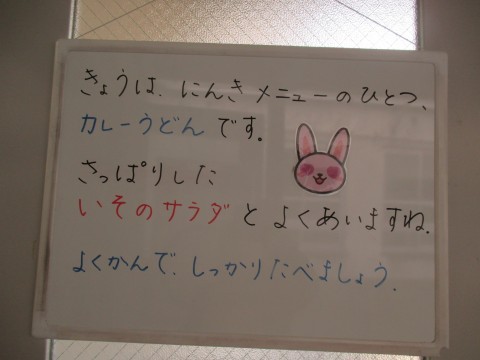 きょうは、にんきメニューのひとつ、
カレーうどんです。
さっぱりした
いそのサラダとよくあいますね。
よくかんで、しっかりたべましょう。